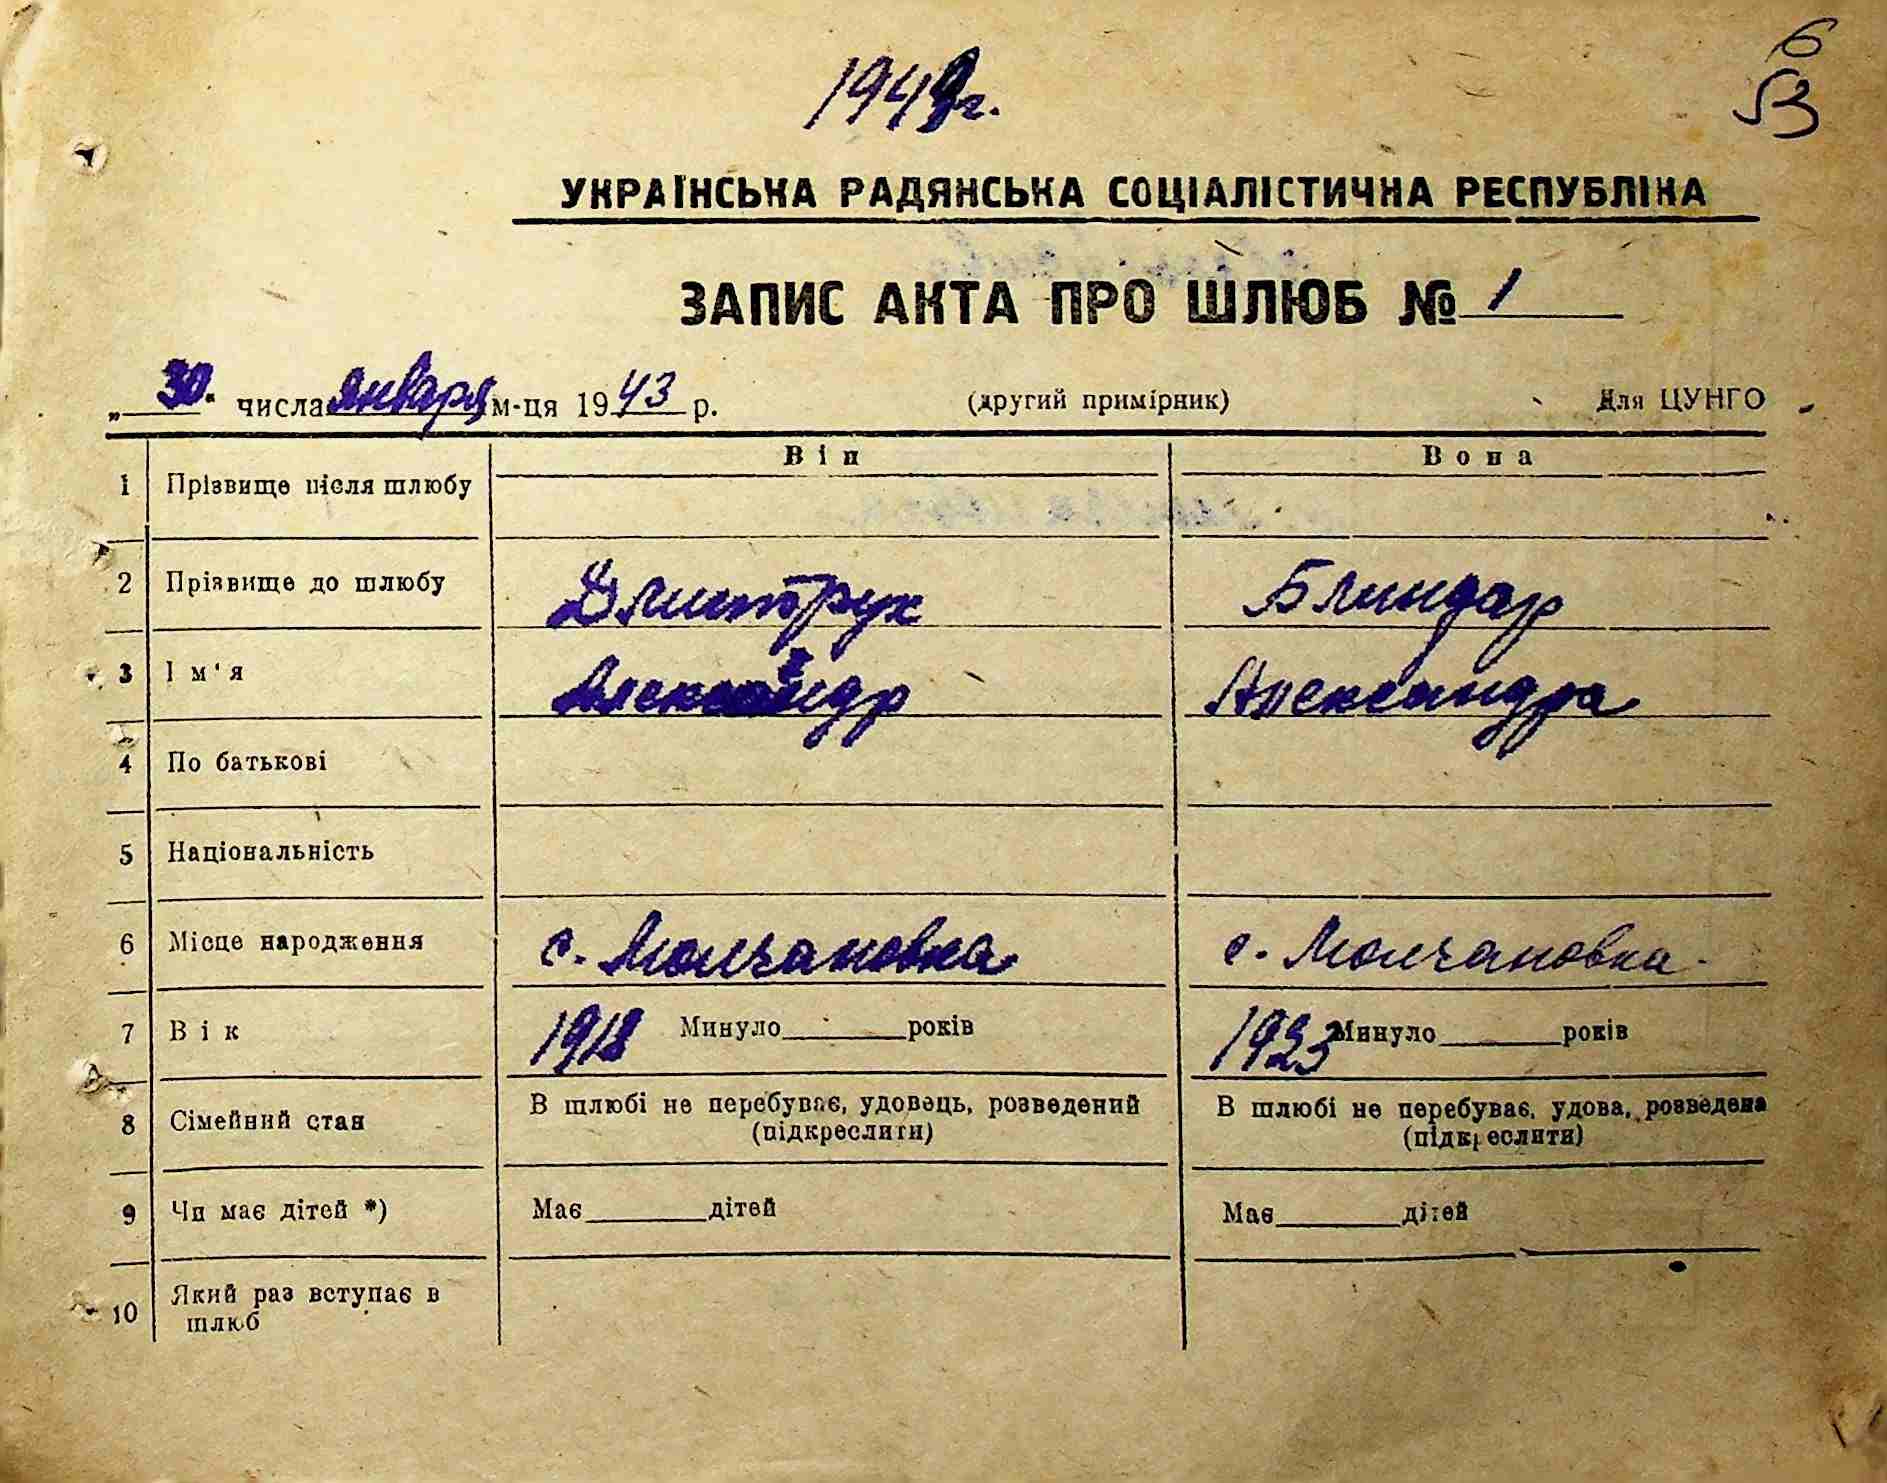 1949г.
6
53
УКРАЇНСЬКА РАДЯНСЬКА СОЦІАЛІСТИЧНА РЕСПУБЛІКА
ЗАПИС АКТА ПРО ШЛЮБ № 1
„30“ числа января м-ця 1943 р. (другий примірник) Для ЦУНГО
Він Вона
1 Прізвище після шлюбу
2 Прізвище до шлюбу Дмитрук Блиндар
3 Ім'я Александр Александра
4 По батькові
5 Національність
6 Місце народження с. Молчановка с. Молчановка
7 Вік 1918 Минуло______років 1923 Минуло______років
8 Сімейний стан В шлюбі не перебуває, удовець, розведений (підкреслити) В шлюбі не перебуває, удова, розведена (підкреслити)
9 Чи має дітей *) Має______дітей Має______дітей
10 Який раз вступає в
шлюб